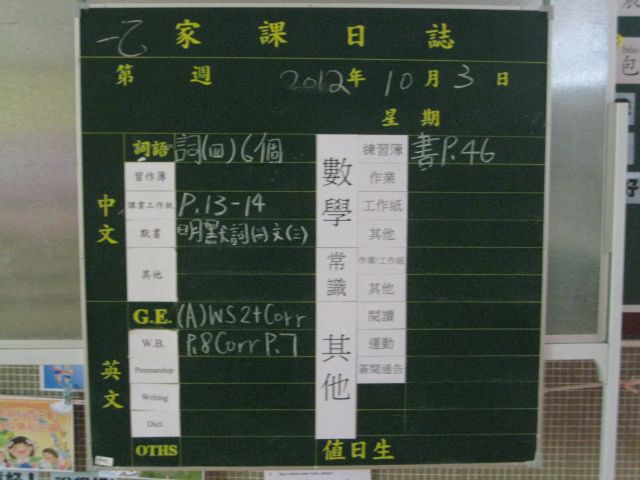 一乙 家課日誌
第 週 2012年 10月 3日
星期
中文
詞語 詞(四)6個
習作簿
課業工作紙 P.13-14
默書 明默詞(一)文(二)
其他
英文
G.E. (A)WS2+Corr
W.B. P.8Corr P.7
Penmanship
Writing
Dict.
OTHS
數學
練習簿 書P.46
作業
工作紙
其他
常識
作業/工作紙
其他
其他
閱讀
運動
簽閱通告
值日生